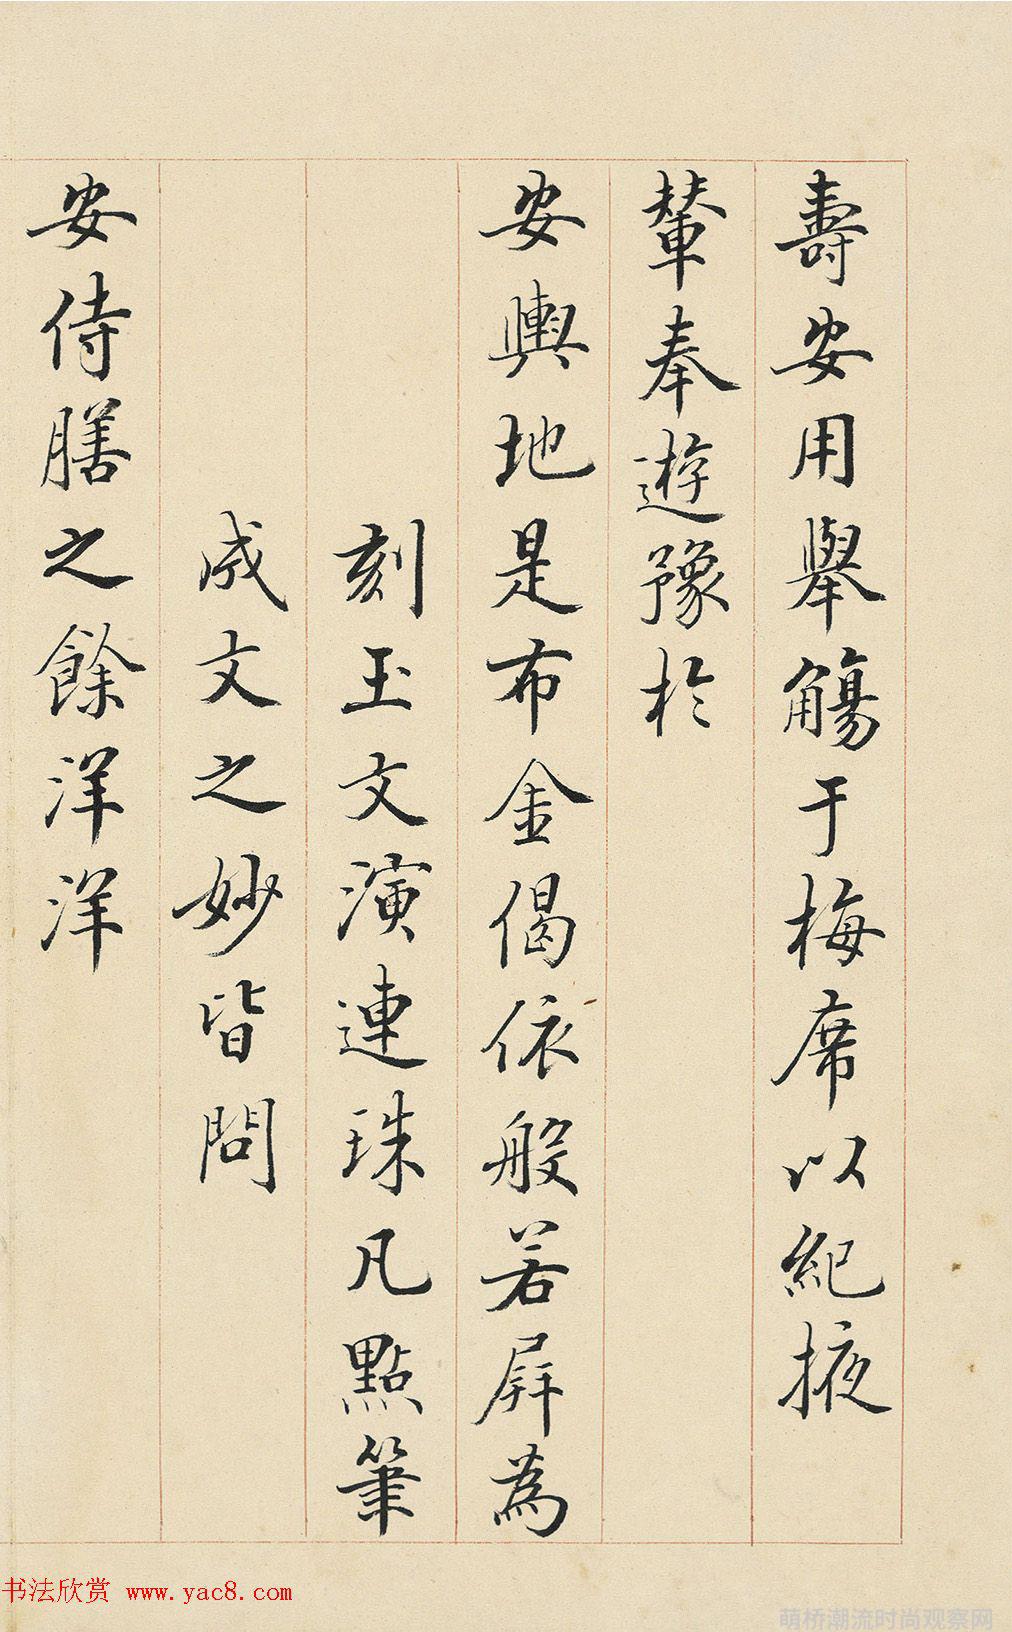 壽安用舉觴于梅席以紀掖
輦奉遊豫於
安輿地是布金偈依般若屏為
刻玉文演連珠凡點筆
成文之妙皆問
安侍膳之餘洋洋
书法欣赏 www.yac8.com
萌桥潮流时尚观察网